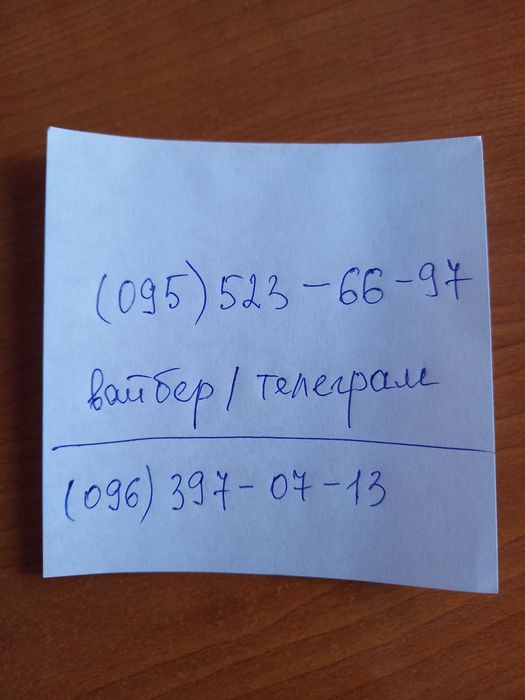 (095) 523-66-97
вайбер / телеграм
(096) 397-07-13